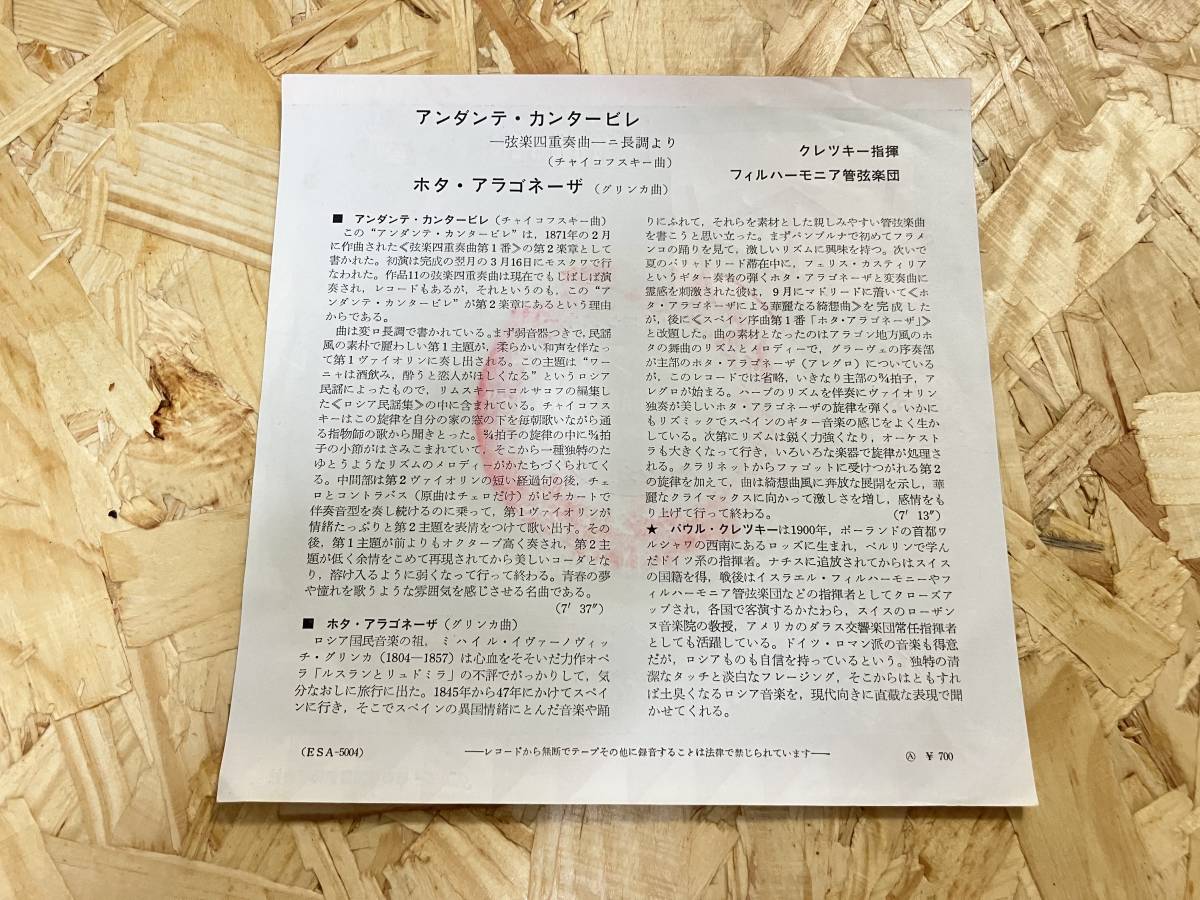 アンダンテ・カンタービレ
―弦楽四重奏曲―ニ長調より
(チャイコフスキー曲)
ホタ・アラゴネーザ (グリンカ曲)
クレツキー指揮
フィルハーモニア管弦楽団
■ アンダンテ・カンタービレ(チャイコフスキー曲)
この“アンダンテ・カンタービレ”は，1871年の2月
に作曲された≪弦楽四重奏曲第1番≫の第2楽章として
書かれた。初演は完成の翌月の3月16日にモスクワで行
なわれた。作品11の弦楽四重奏曲は現在でもしばしば演
奏され，レコードもあるが，それというのも，この“ア
ンダンテ・カンタービレ”が第2楽章にあるという理由
からである。
曲は変ロ長調で書かれている。まず弱音器つきで，民謡
風の素朴で麗わしい第1主題が，柔らかい和声を伴なっ
て第1ヴァイオリンに奏し出される。この主題は“ワー
ニャは酒飲み，酔うと恋人がほしくなる”というロシア
民謡によったもので，リムスキー＝コルサコフの編集し
た≪ロシア民謡集≫の中に含まれている。チャイコフス
キーはこの旋律を自分の家の窓の下を毎朝歌いながら通
る指物師の歌から聞きとった。2/4拍子の旋律の中に3/4拍
子の小節がはさみこまれていて，そこから一種独特のた
ゆとうようなリズムのメロディーがかたちづくられてく
る。中間部は第2ヴァイオリンの短い経過句の後，チェ
ロとコントラバス（原曲はチェロだけ）がピチカートで
伴奏音型を奏し続けるのに乗って，第1ヴァイオリンが
情緒たっぷりと第2主題を表情をつけて歌い出す。その
後，第1主題が前よりもオクターブ高く奏され，第2主
題が低く余情をこめて再現されてから美しいコーダとな
り，溶け入るように弱くなって行って終わる。青春の夢
や憧れを歌うような雰囲気を感じさせる名曲である。
(7′ 37″)
■ ホタ・アラゴネーザ (グリンカ曲)
ロシア国民音楽の祖，ミハイル・イヴァーノヴィッ
チ・グリンカ (1804―1857) は心血をそそいだ力作オペ
ラ「ルスランとリュドミラ」の不評でがっかりして，気
分なおしに旅行に出た。1845年から47年にかけてスペイ
ンに行き，そこでスペインの異国情緒にとんだ音楽や踊
りにふれて，それらを素材とした親しみやすい管弦楽曲
を書こうと思い立った。まずパンプルナで初めてフラメ
ンコの踊りを見て，激しいリズムに興味を持つ。次いで
夏のバリャドリード滞在中に，フェリス・カスティリア
というギター奏者の弾くホタ・アラゴネーザと変奏曲に
霊感を刺激された彼は，9月にマドリードに着いて≪ホ
タ・アラゴネーザによる華麗なる綺想曲≫を完成した
が，後に≪スペイン序曲第1番「ホタ・アラゴネーザ」≫
と改題した。曲の素材となったのはアラゴン地方風のホ
タの舞曲のリズムとメロディーで，グラーヴェの序奏部
が主部のホタ・アラゴネーザ（アレグロ）についている
が，このレコードでは省略，いきなり主部の3/4拍子，ア
レグロが始まる。ハープのリズムを伴奏にヴァイオリン
独奏が美しいホタ・アラゴネーザの旋律を弾く。いかに
もリズミックでスペインのギター音楽の感じをよく生か
している。次第にリズムは鋭く力強くなり，オーケスト
ラも大きくなって行き，いろいろな楽器で旋律が処理さ
れる。クラリネットからファゴットに受けつがれる第2
の旋律を加えて，曲は綺想曲風に奔放な展開を示し，華
麗なクライマックスに向かって激しさを増し，感情をも
り上げて行って終わる。 (7′ 13″)
★ パウル・クレツキーは1900年，ポーランドの首都ワ
ルシャワの西南にあるロッズに生まれ，ベルリンで学ん
だドイツ系の指揮者。ナチスに追放されてからはスイス
の国籍を得，戦後はイスラエル・フィルハーモニーやフ
ィルハーモニア管弦楽団などの指揮者としてクローズア
ップされ，各国で客演するかたわら，スイスのローザン
ヌ音楽院の教授，アメリカのダラス交響楽団常任指揮者
としても活躍している。ドイツ・ロマン派の音楽も得意
だが，ロシアものも自信を持っているという。独特の清
潔なタッチと淡白なフレージング，そこからはともすれ
ば土臭くなるロシア音楽を，現代向きに直蔵な表現で聞
かせてくれる。
(ESA-5004)
――レコードから無断でテープその他に録音することは法律で禁じられています――
Ⓐ ¥ 700